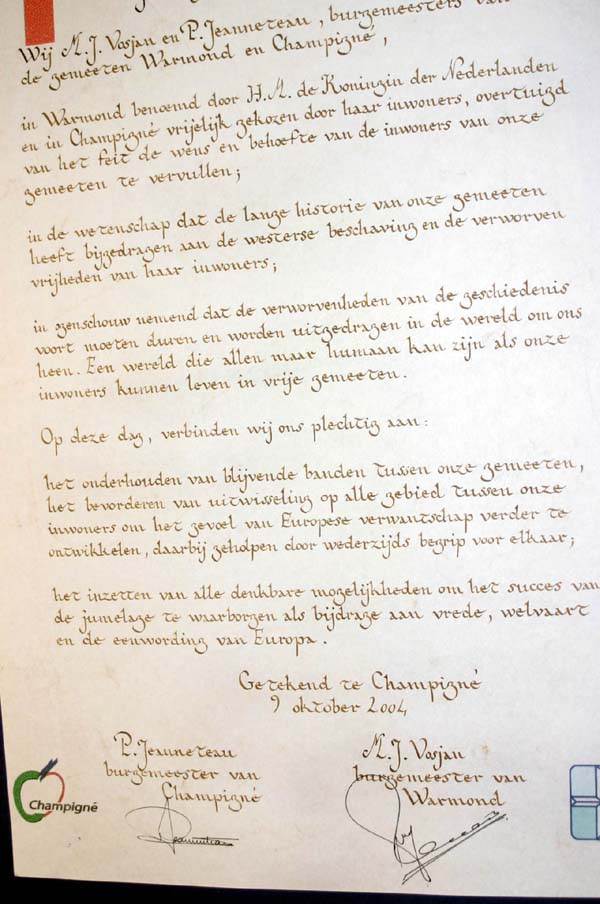 Wij M.J. Vosjan en P. Jeanneteau, burgemeesters van
de gemeeten Warmond en Champigné,
in Warmond benoemd door H.M. de Koningin der Nederlanden
en in Champigné vrijelijk gekozen door haar inwoners, overtuigd
van het feit de wens en behoefte van de inwoners van onze
gemeeten te vervullen;
in de wetenschap dat de lange historie van onze gemeeten
heeft bijgedragen aan de westerse beschaving en de verworven
vrijheden van haar inwoners;
in ogenschouw nemend dat de verworvenheden van de geschiedenis
voort moeten duren en worden uitgedragen in de wereld om ons
heen. Een wereld die allen maar humaan kan zijn als onze
inwoners kunnen leven in vrije gemeeten.
Op deze dag, verbinden wij ons plechtig aan:
het onderhouden van blijvende banden tussen onze gemeeten,
het bevorderen van uitwisseling op alle gebied tussen onze
inwoners om het gevoel van Europese verwantschap verder te
ontwikkelen, daarbij geholpen door wederzijds begrip voor elkaar;
het inzetten van alle denkbare mogelijkheden om het succes van
de jumelage te waarborgen als bijdrage aan vrede, welvaart
en de eenwording van Europa.
Getekend te Champigné
9 oktober 2004
P. Jeanneteau
burgemeester van
Champigné
M.J. Vosjan
burgemeester van
Warmond
Champigné